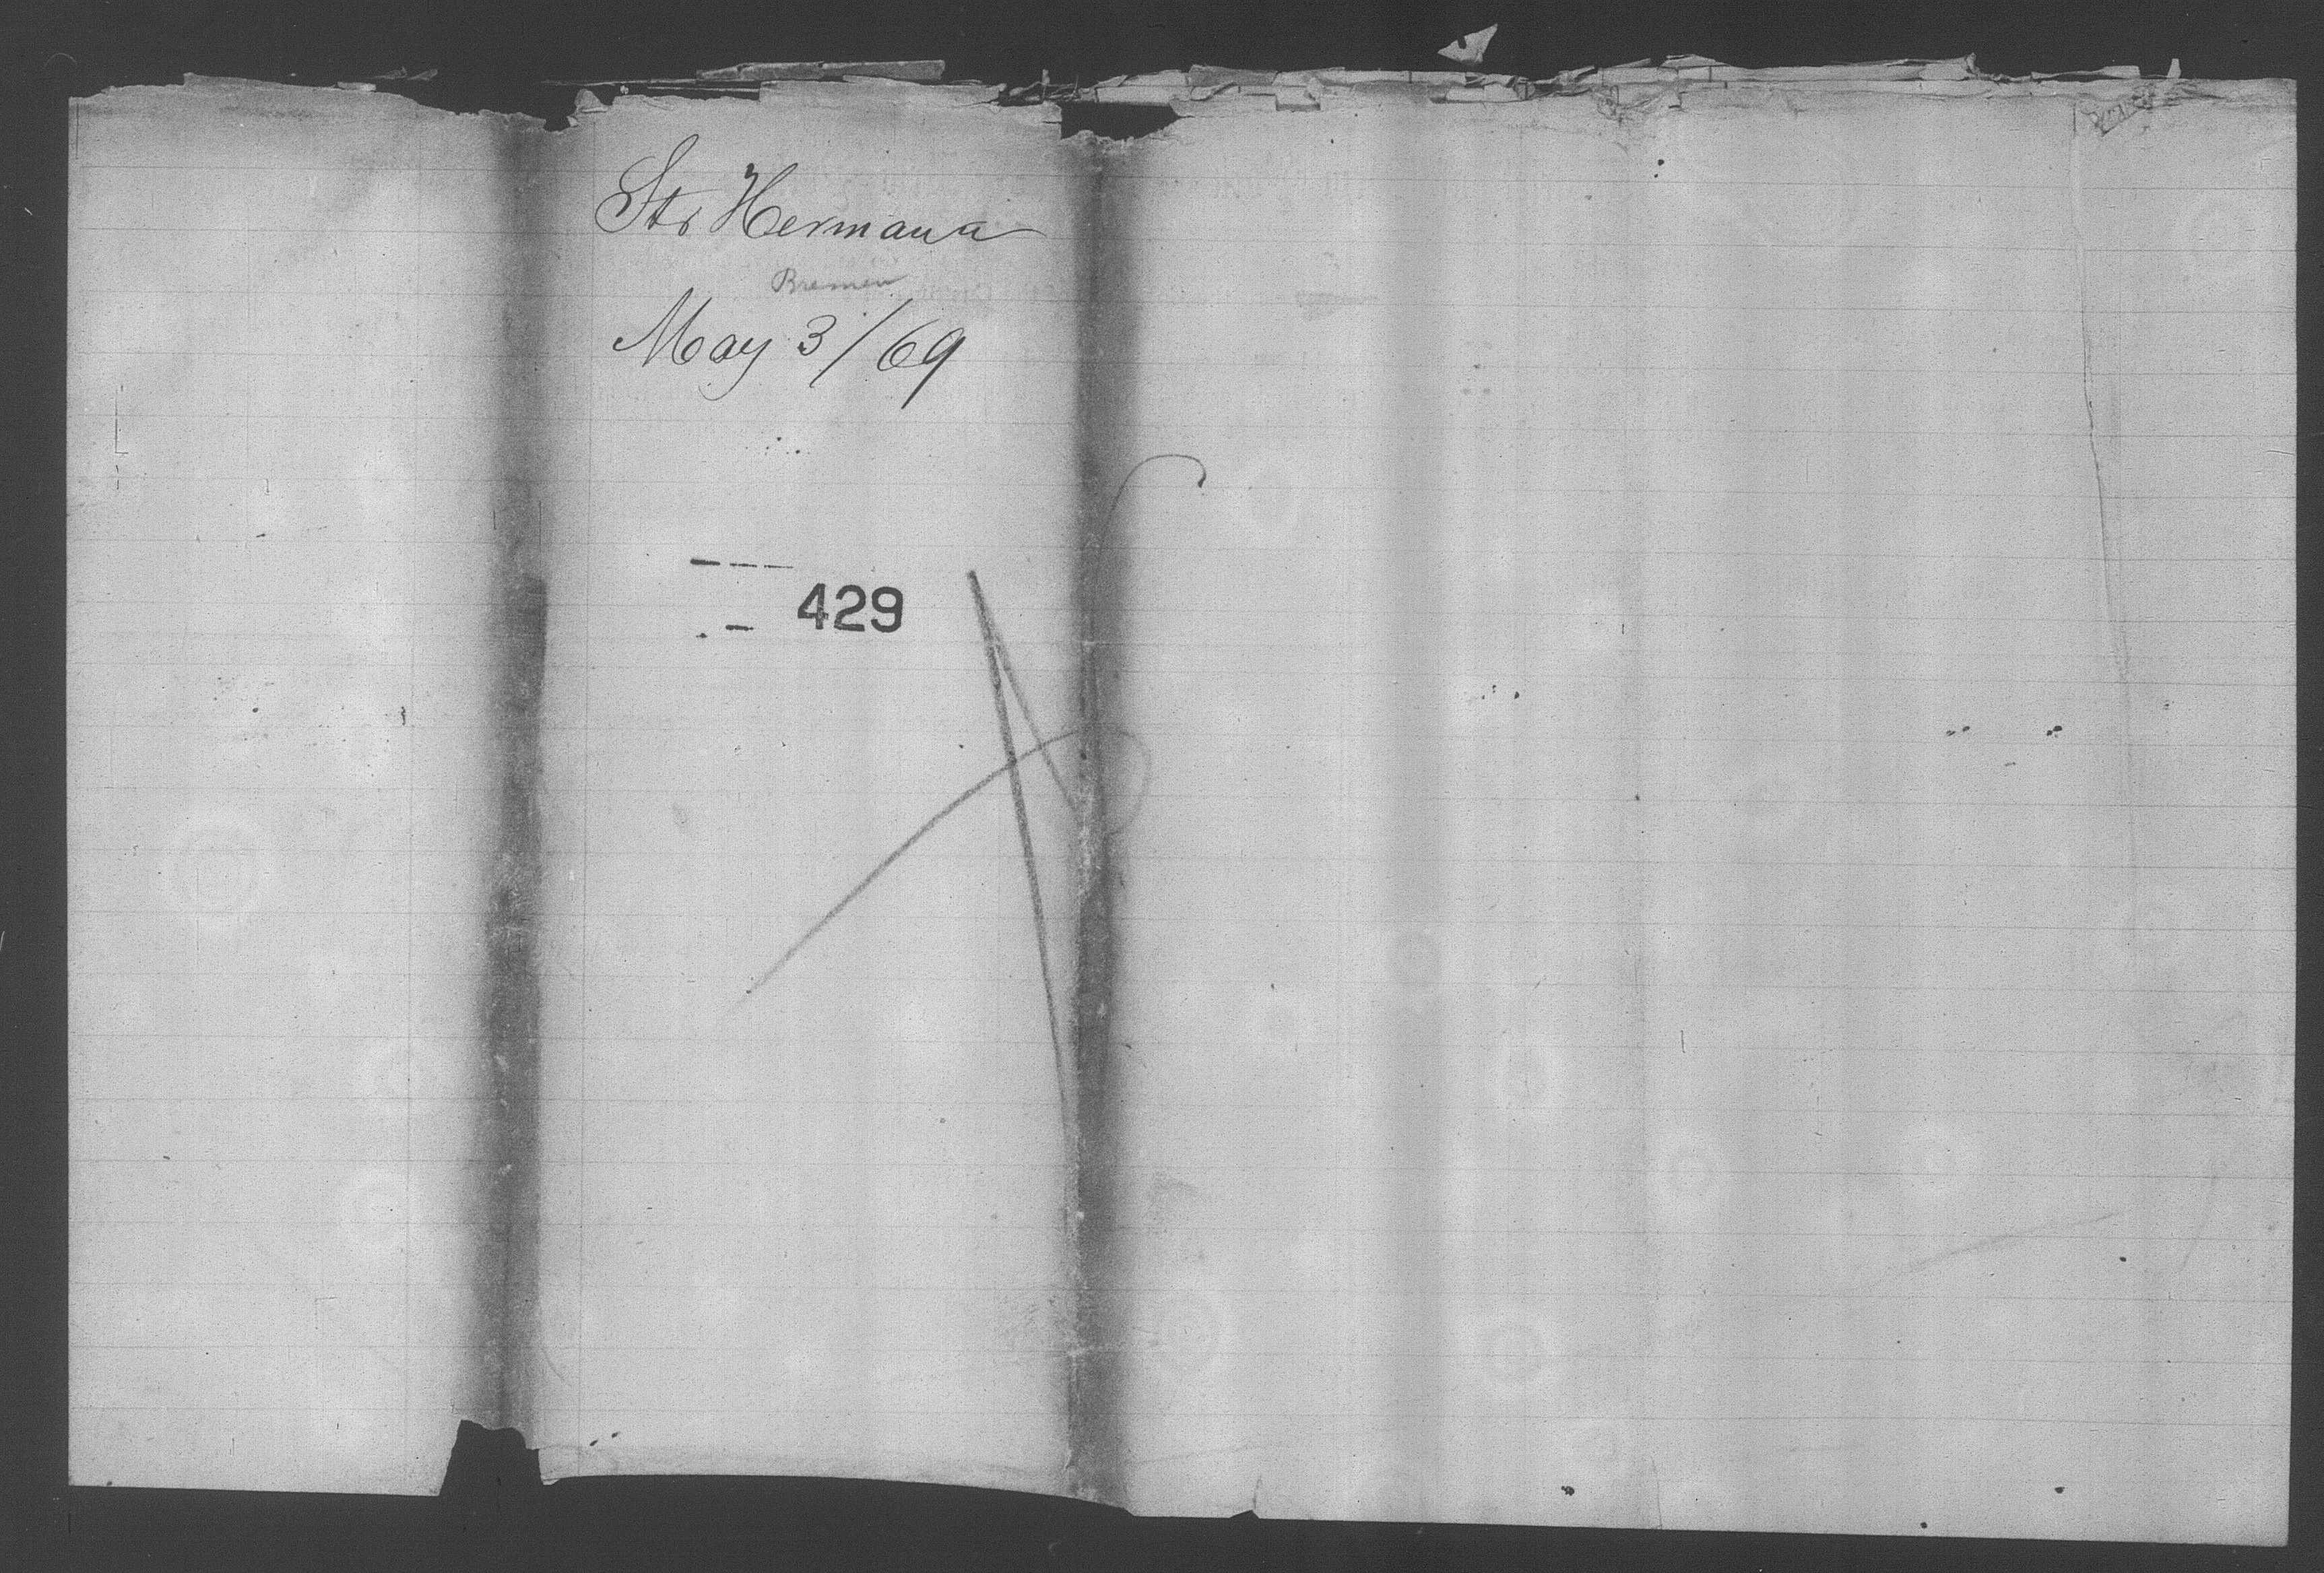 Str Hermann
Bremen
May 3/69
429